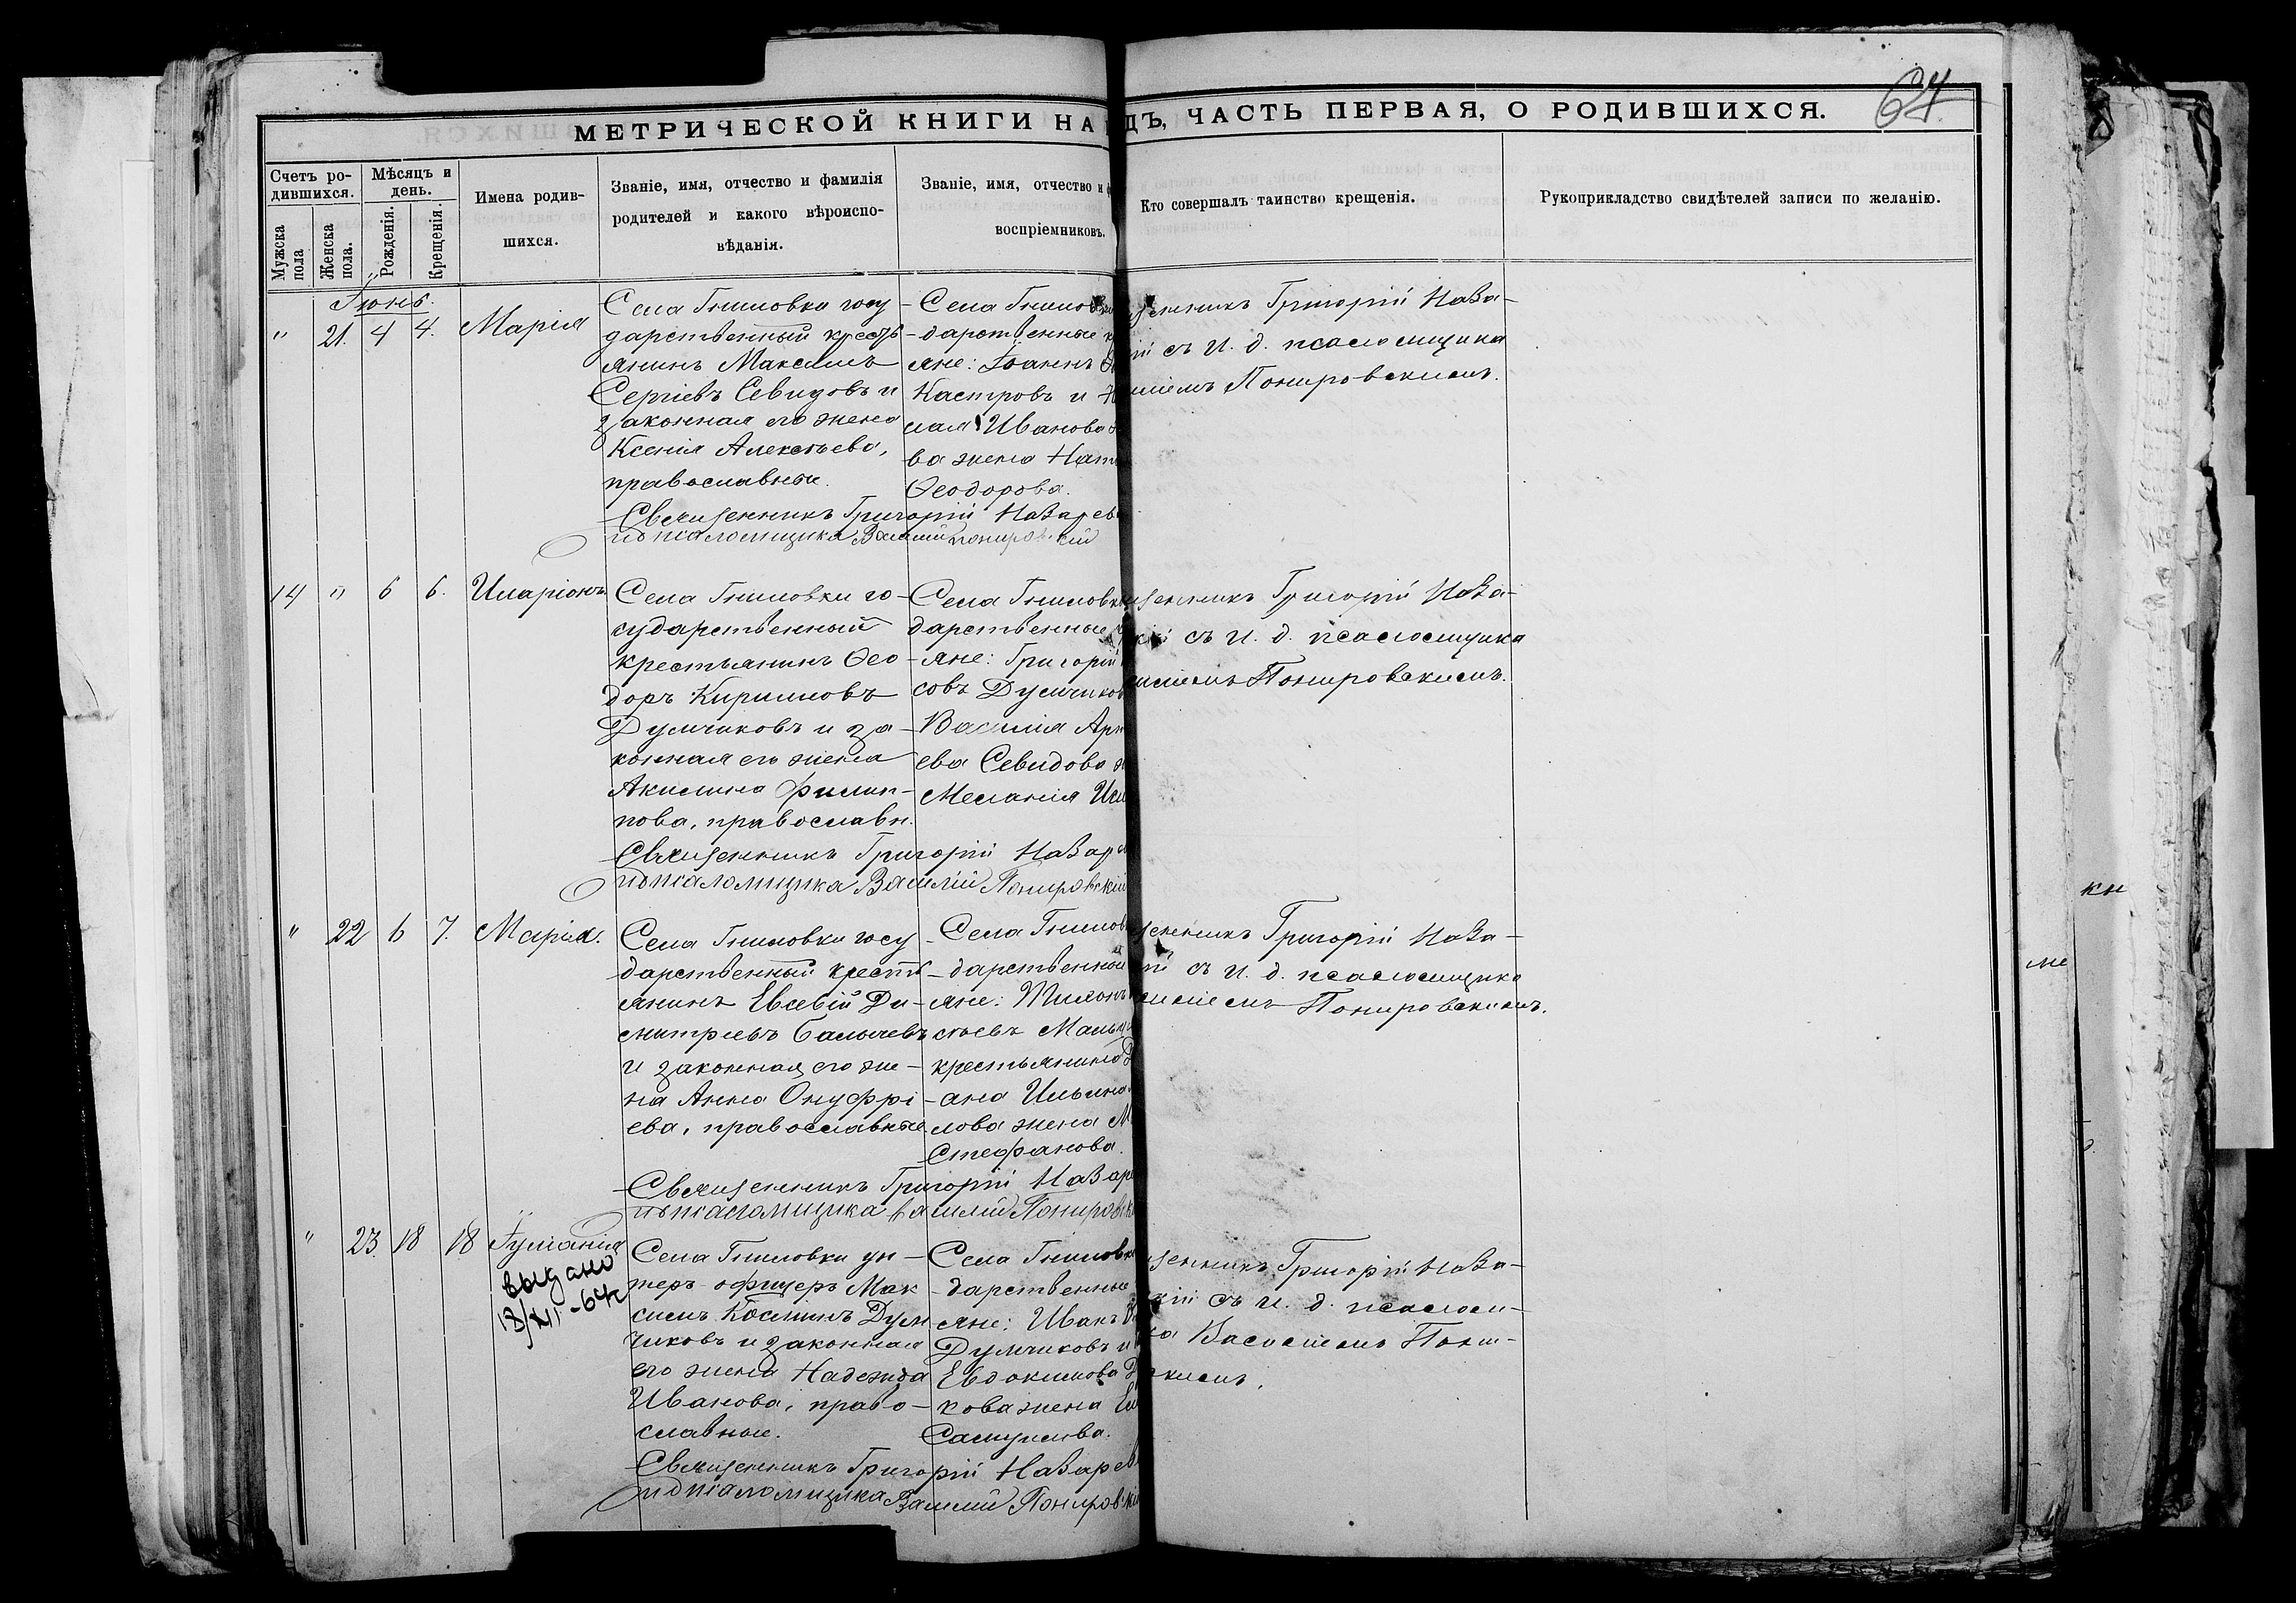 64
МЕТРИЧЕСКОЙ КНИГИ НА ДЪ, ЧАСТЬ ПЕРВАЯ, О РОДИВШИХСЯ.
Счетъ ро-
дившихся.
Мужска
пола
Женска
пола.
Мѣсяцъ и
день.
Рожденія.
Крещенія.
Имена родив-
шихся.
Званіе, имя, отчество и фамилія
родителей и какого вѣроиспо-
вѣданія.
Званіе, имя, отчество и ф
воспріемниковъ.
Кто совершалъ таинство крещенія.
Рукоприкладство свидѣтелей записи по желанію.
Іюнь.
" 21. 4 4. Марія
Села Гниловки госу
дарственный кресть
янинъ Максимъ
Сергіевъ Севидовъ и
законная его жена
Ксенія Алексѣева,
православные.
Села Гнилов
дарственные
яне: Іоаннъ
Кастровъ и
Иванова
ва жена Нат
Ѳеодорова.
щенникъ Григорій Наза-
ій съ и. д. псаломщика
иліемъ Понировскимъ.
Священникъ Григорій Назарев
ид псаломщика Василій Понировскій
14 " 6 6. Иларіонъ
Села Гниловки го-
сударственный
крестьянинъ Ѳео
доръ Кирилловъ
Думчиковъ и за-
конная его жена
Акилина Филип-
пова, православн.
Села Гниловк
дарственные
яне: Григорій
совъ Думчиков
Василія
ева Севидова
Меланія
щенникъ Григорій Наза-
кій съ и. д. псаломщика
иліемъ Понировскимъ.
Священникъ Григорій Назар
ид псаломщика Василій Понировскій
" 22 6 7. Марія.
Села Гниловки госу
дарственный кресть
янинъ Евсевій Ди-
митріевъ Балычевъ
и законная его же-
на Анна Онуфрі-
ева, православные.
Села Гнилов
дарственный
яне:
Маль
крестьянина
ана Ильина
лова жена М
Стефанова.
щенникъ Григорій Наза-
ій съ и. д. псаломщика
силіемъ Понировскимъ.
Священникъ Григорій Назар
ид псаломщика Василій Понировск
" 23. 18 18 Іуліанія
выдано
13/XII-64г
Села Гниловки ун-
теръ-офицеръ Мак
симъ Косминъ Дум
чиковъ и законная
его жена Надежда
Иванова, право-
славные.
Села Гниловк
дарственные
яне: Иванъ
Думчиковъ и
Евдокимова Д
кова жена
Самуилова.
щенникъ Григорій Наза-
кій съ и. д. псалом-
ка Василіемъ Пони-
скимъ.
Священникъ Григорій Назарев
ид псаломщика Василій Понировскі
кн